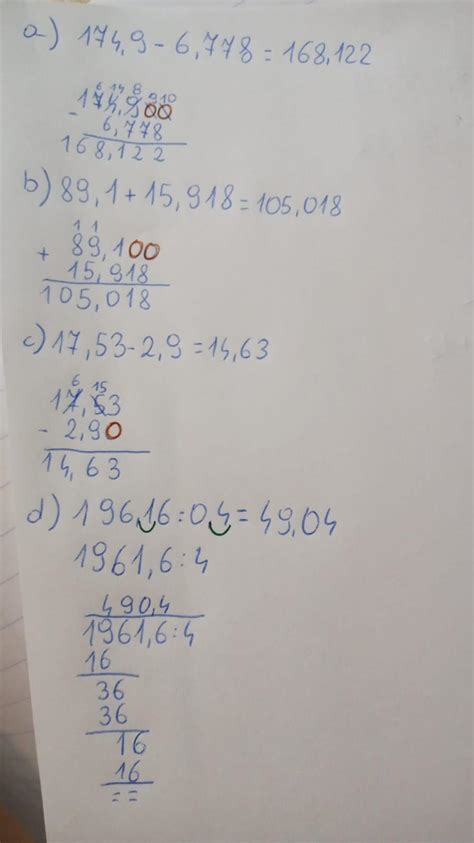 a) 174,9 - 6,778 = 168,122
6 14 8 9 10
174,900
- 6,778
168,122
b) 89,1 + 15,918 = 105,018
1 1
+ 89,100
15,918
105,018
c) 17,53 - 2,9 = 14,63
6 15
17,53
- 2,90
14,63
d) 196,16 : 0,4 = 49,04
1961,6 : 4
490,4
1961,6 : 4
16
36
36
16
16
= =